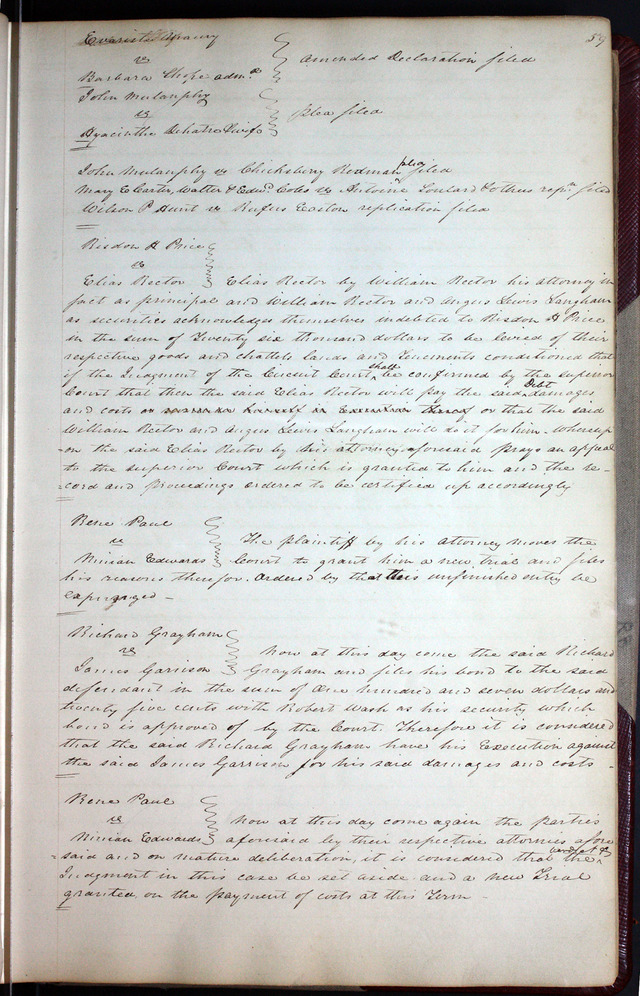 59
Evariste Maury
vs
Amended Declaration filed
Barbara Choze adm.x
John Mulanphy
vs
plea filed
Hyacinthe Lehatre & wife
John Mulanphy vs Chicksbery Redman plea filed
Mary E Carter, Walter & Edwd. Coles vs Antoine Soulard & others repn. filed
Wilson P Hunt vs Rufus Easton replication filed
Risdon H Price
vs
Elias Rector Elias Rector by William Rector his attorney in
fact as principal and William Rector and Angus Lewis Langham
as securities acknowledges themselves indebted to Risdon H Price
in the sum of Twenty six thousand dollars to be levied of their
respective goods and chattels lands and Tenements conditioned that
if the Judgment of the Circuit Court shall be confirmed by the superior
Court that then the said Elias Rector will pay the said Debt damages
and costs or surrender himself in Execution thereof or that the said
William Rector and Angus Lewis Langham will do it for him. Whereup
-on the said Elias Rector by his attorney aforesaid prays an appeal
to the superior Court which is granted to him and the re-
cord and proceedings ordered to be certified up accordingly
Rene Paul
vs The plaintiff by his attorney moves the
Ninian Edwards Court to grant him a new trial and files
his reasons therefor. Ordered by that this unfinished entry be
expunged -
Richard Grayham
vs Now at this day come the said Richard
James Garrison Grayham and files his bond to the said
defendant in the sum of One hundred and seven dollars and
twenty five cents with Robert Wash as his security which
bond is approved of by the Court. Therefore it is considered
that the said Richard Grayham have his Execution against
the said James Garrison for his said damages and costs -
Rene Paul
vs Now at this day come again the parties
Ninian Edwards aforesaid by their respective attornies afore
=said and on mature deliberation, it is considered that the verdict &
Judgment in this case be set aside and a new Trial
granted on the payment of costs at this Term -